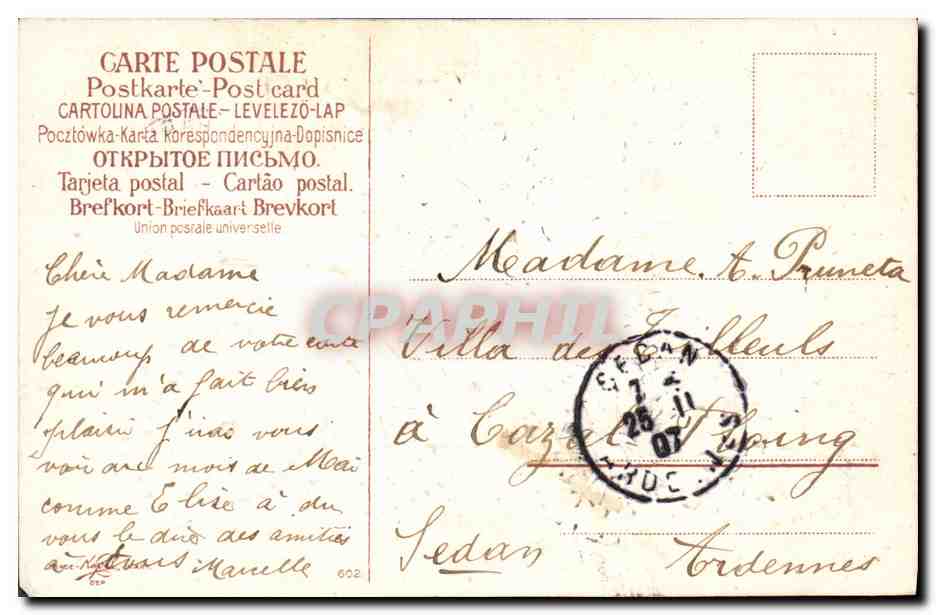 CARTE POSTALE
Postkarte-Postcard
CARTOLINA POSTALE-LEVELEZÖ-LAP
Pocztówka-Karta Korespondencyjna-Dopisnice
ОТКРЫТОЕ ПИСЬМО.
Tarjeta postal - Cartão postal.
Brefkort-Briefkaart Brevkort
Union postale universelle
Chère Madame
je vous remercie
beaucoup de votre carte
qui m'a fait bien
plaisir j'irai vous
voir au mois de Mai
comme Elise à du
vous le dire des amitiés
à tous Marcelle
602
Madame A. Pruneta
Villa des Tilleuls
à Cazal Floing
Sedan Ardennes
SEDAN
25 11
07
ARDENNES
CPAPHIL